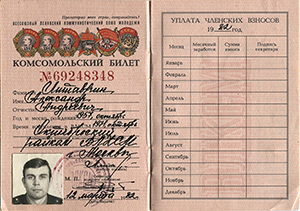 Пролетарии всех стран, соединяйтесь!
ВСЕСОЮЗНЫЙ ЛЕНИНСКИЙ КОММУНИСТИЧЕСКИЙ СОЮЗ МОЛОДЕЖИ
КОМСОМОЛЬСКИЙ БИЛЕТ
№69248348
Фамилия
Имя Александр
Отчество Андреевич
Год и месяц рождения 1957, октябрь
Время
Октябрьский
райком ВЛКСМ
г. Москвы
М. П.
12 марта
УПЛАТА ЧЛЕНСКИХ ВЗНОСОВ
19 г.
Месяц
Месячный заработок
Сумма взноса
Подпись секретаря
Январь
Февраль
Март
Апрель
Май
Июнь
Июль
Август
Сентябрь
Октябрь
Ноябрь
Декабрь